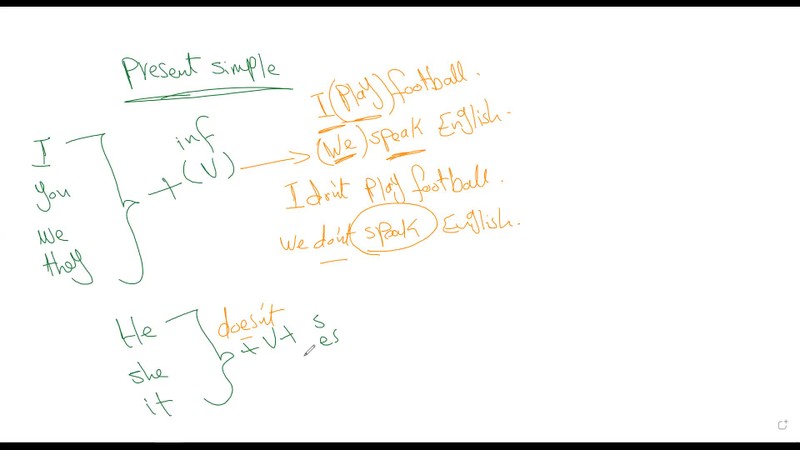 Present simple
I (Play) football.
(We) speak English.
I don't play football.
We don't speak English.
I
you
we
they
+
inf
(V)
He
she
it
doesn't
+ V +
s
es